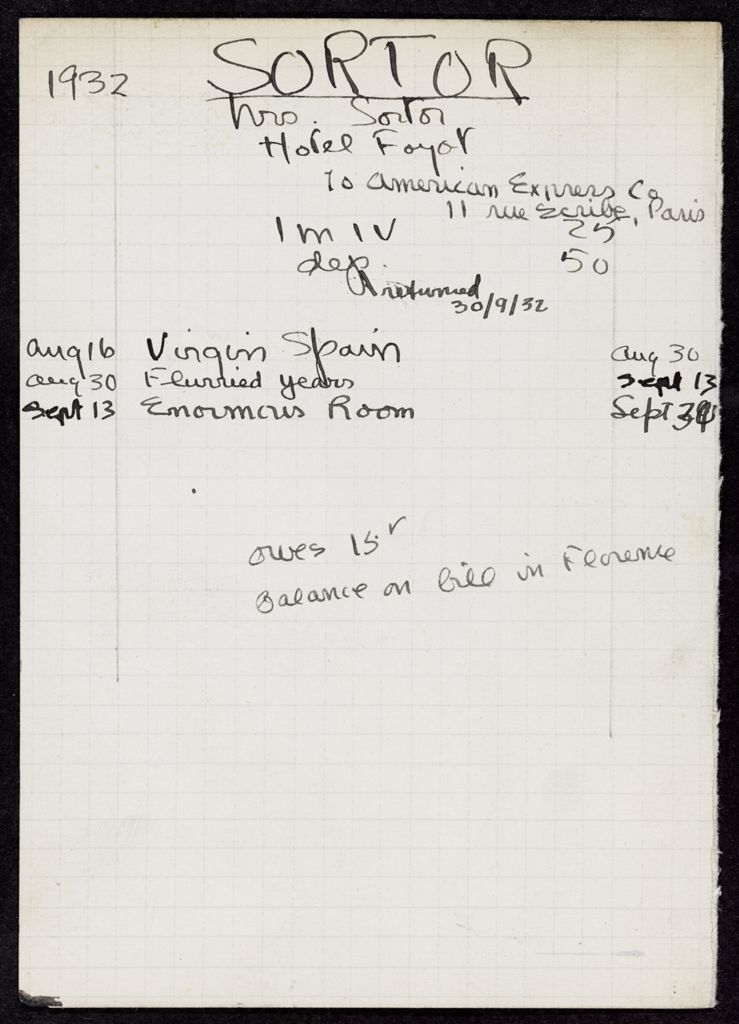 1932 SORTOR
Mrs. Sortor
Hotel Foyot
To American Express Co
11 rue Scribe, Paris
1 m 1 V 25
dep. 50
returned
30/9/32
aug 16 Virgin Spain aug 30
aug 30 Flurried years Sept 13
Sept 13 Enormous Room Sept 30
owes 15
Balance on bill in Florence